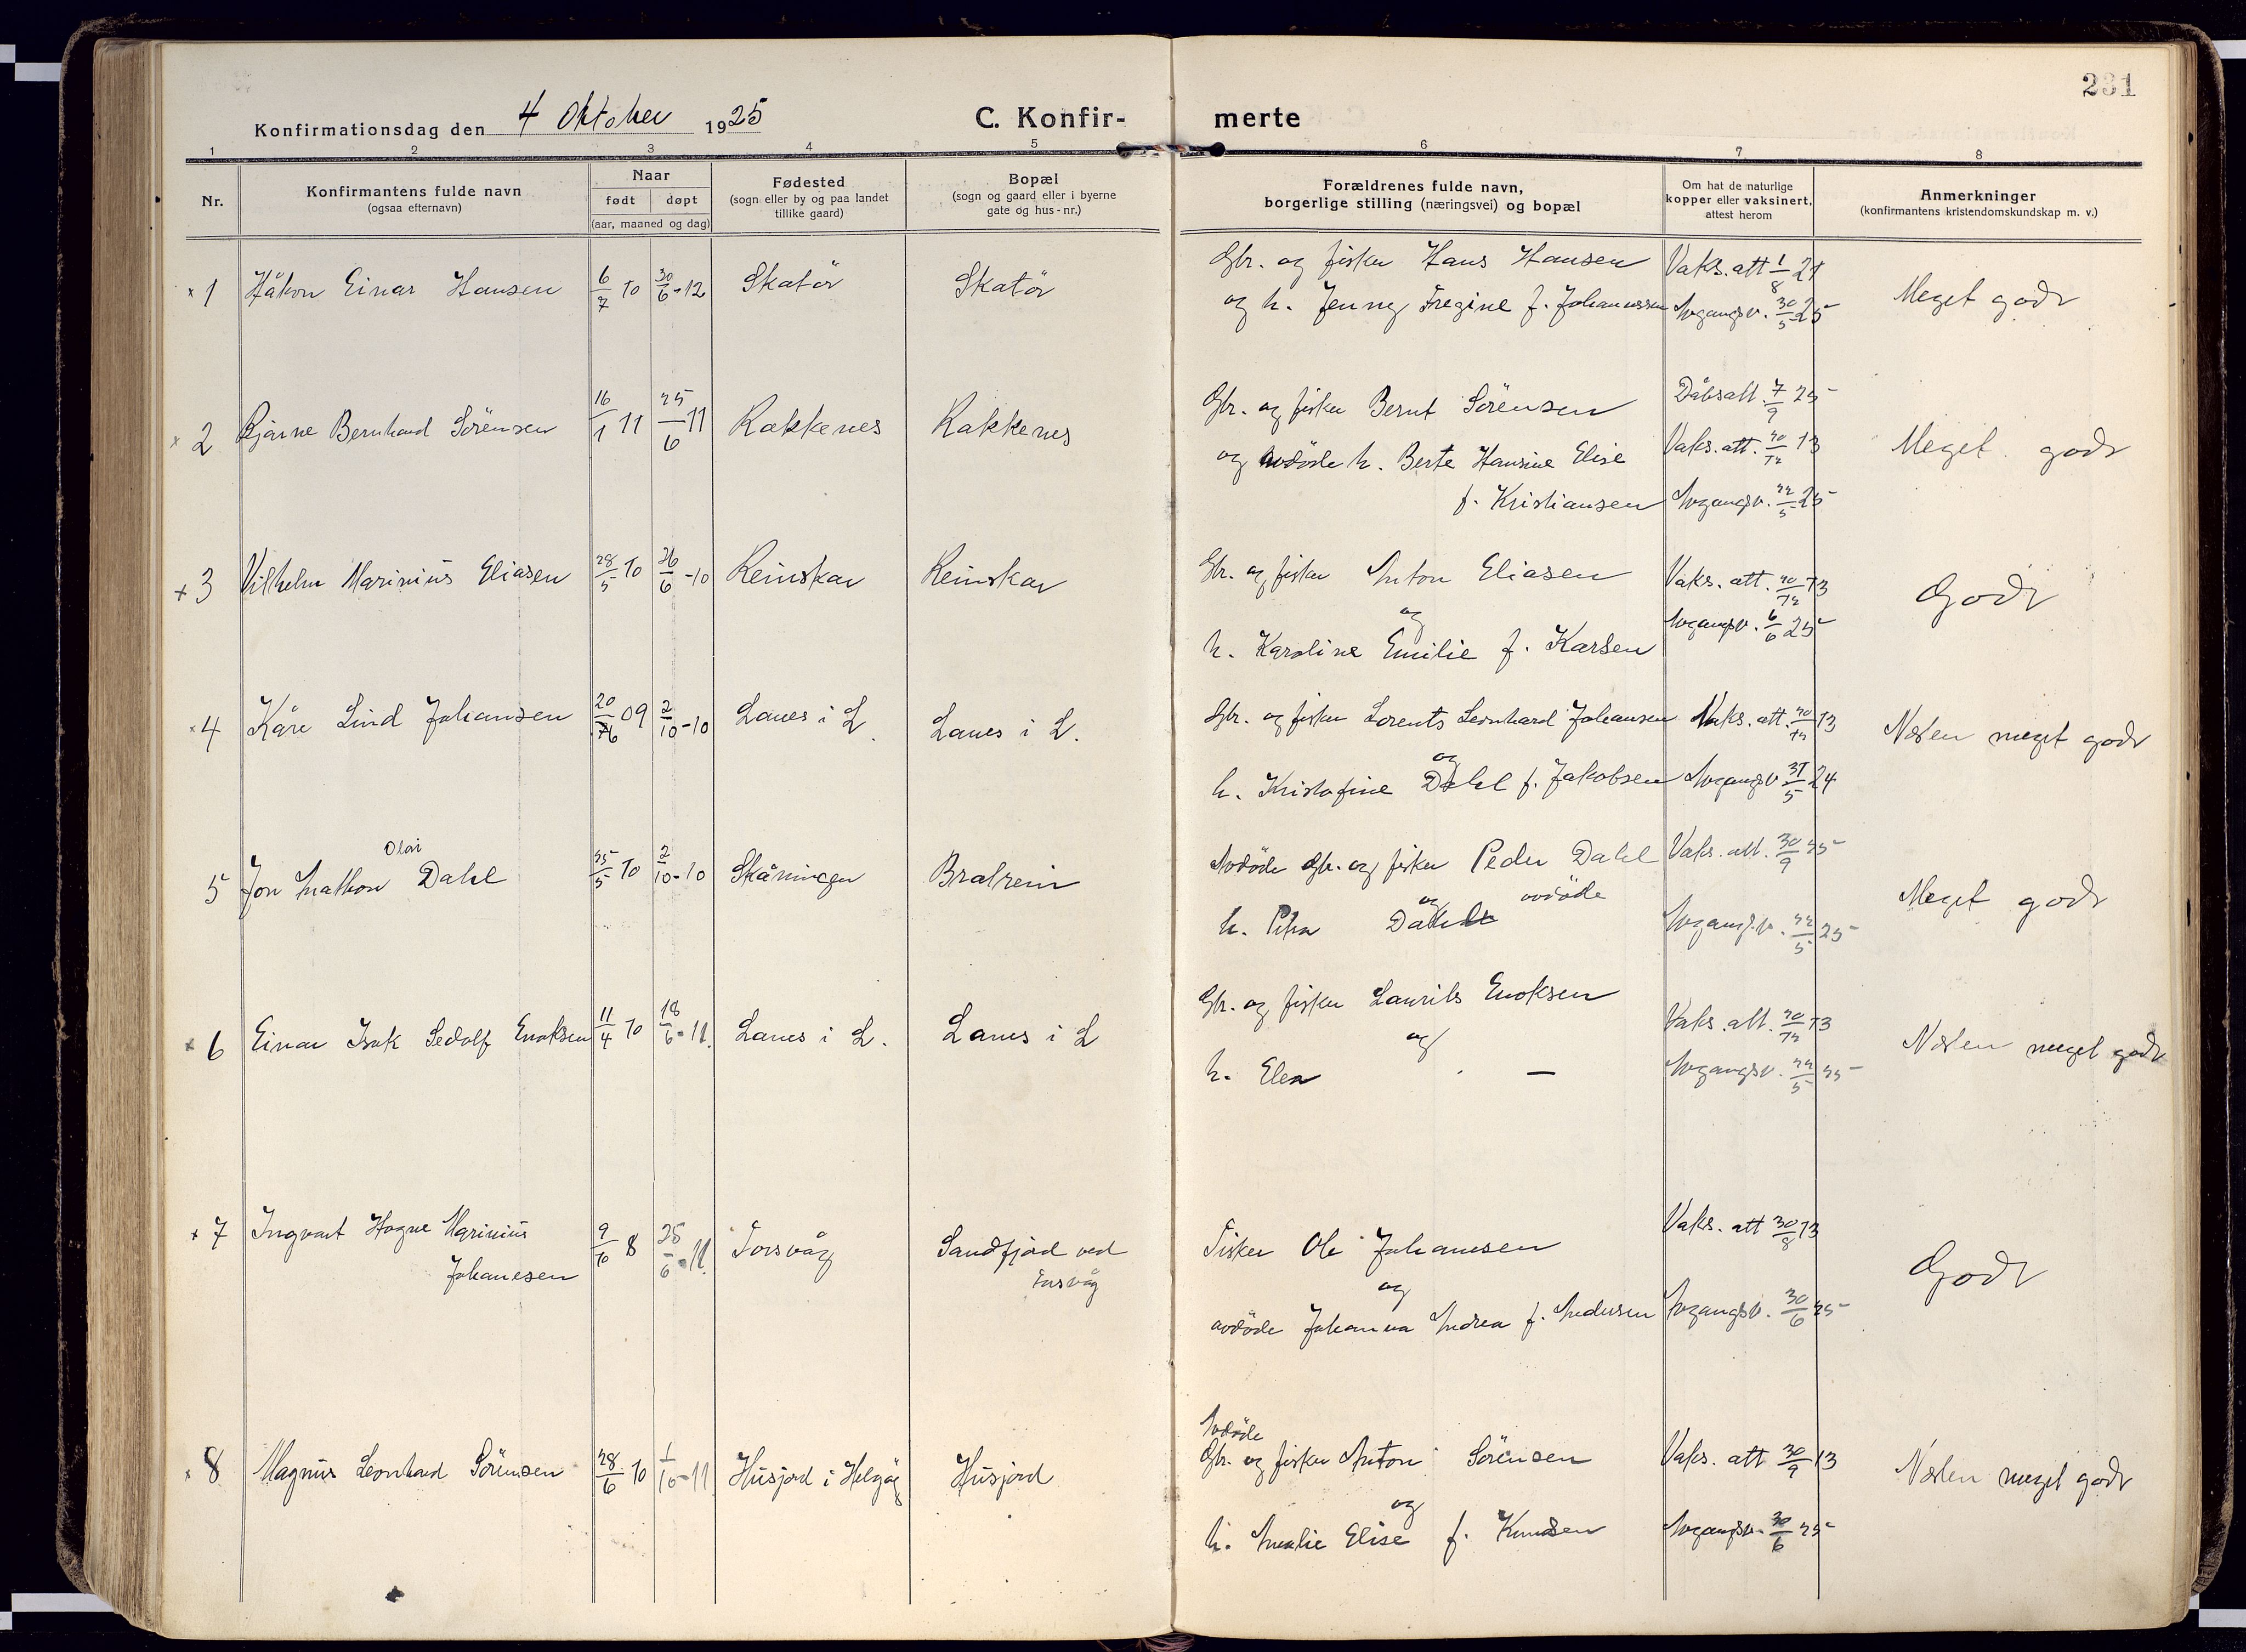 231
Konfirmationsdag den 4 Oktober 1925
C. Konfir-
merte
1 2 3 4 5 6 7 8
Nr.
Konfirmantens fulde navn
(ogsaa efternavn)
Naar
født døpt
(aar, maaned og dag)
Fødested
(sogn eller by og paa landet
tillike gaard)
Bopæl
(sogn og gaard eller i byerne
gate og hus-nr.)
Forældrenes fulde navn,
borgerlige stilling (næringsvei) og bopæl
Om hat de naturlige
kopper eller vaksinert,
attest herom
Anmerkninger
(konfirmantens kristendomskundskap m. v.)
× 1 Håkon Einar Hansen 6/7 10 30/6-12 Skatör Skatör
Gbr. og fisker Hans Hansen Vaks. att 1/8 21
og h. Jenny Fregine f. Johannssen Avgangsv. 30/5 25
Meget godt
× 2 Bjarne Bernhard Sörensen 16/1 11 25/6 11 Rakkenes Rakkenes
Gbr. og fisker Bernt Sörensen Dåbsatt. 7/9 25
og avdöde h. Berte Hansine Elise Vaks. att. 20/12 13
f. Kristiansen Avgangsv. 22/5 25
Meget godt
× 3 Vilhelm Marinius Eliasen 28/5 10 26/6-10 Reinskar Reinskar
Gbr. og fisker Anton Eliasen Vaks. att. 20/12 13
og Avgangsv. 6/6 25
h. Karoline Emilie f. Karlsen
Godt
× 4 Kåre Lind Johansen 20/6 09 2/10-10 Lanes i L. Lanes i L.
Gbr. og fisker Lorents Leonhard Johansen Vaks. att. 20/12 13
og
h. Kristofine Dahl f. Jakobsen Avgangsv 31/5 24
Næsten meget godt
Olai
5 Jon Mathon Dahl 25/5 10 2/10-10 Skåningen Bratrein
Avdöde Gbr. og fisker Peder Dahl Vaks. att. 30/9 25
og avdöde
h. Petra Dahl Avgangsv. 22/5 25
Meget godt
× 6 Einar Isak Sedolf Enoksen 11/4 10 18/6-11. Lanes i L. Lanes i L
Gbr. og fisker Laurits Enoksen
og Vaks. att. 20/12 13
h. Elen — Avgangsv. 22/5 25
Næsten meget godt
× 7 Ingvart Hagne Marinius
Johanesen
9/10 8 25/6-11. Torsvåg Sandfjord ved
Torsvåg
Fisker Ole Johansen Vaks. att 30/8 13
og
avdöde Johanna Andrea f. Andersen Avgangsv. 30/6 25
Godt
× 8 Magnus Leonhard Sörensen 28/6 10 1/10-11 Husjord i Helgöy Husjord
Avdöde
Gbr. og fisker Anton Sörensen Vaks. att 30/9 13
og
h. Amalie Elise f. Knudsen Avgangsv. 30/6 25
Næsten meget godt